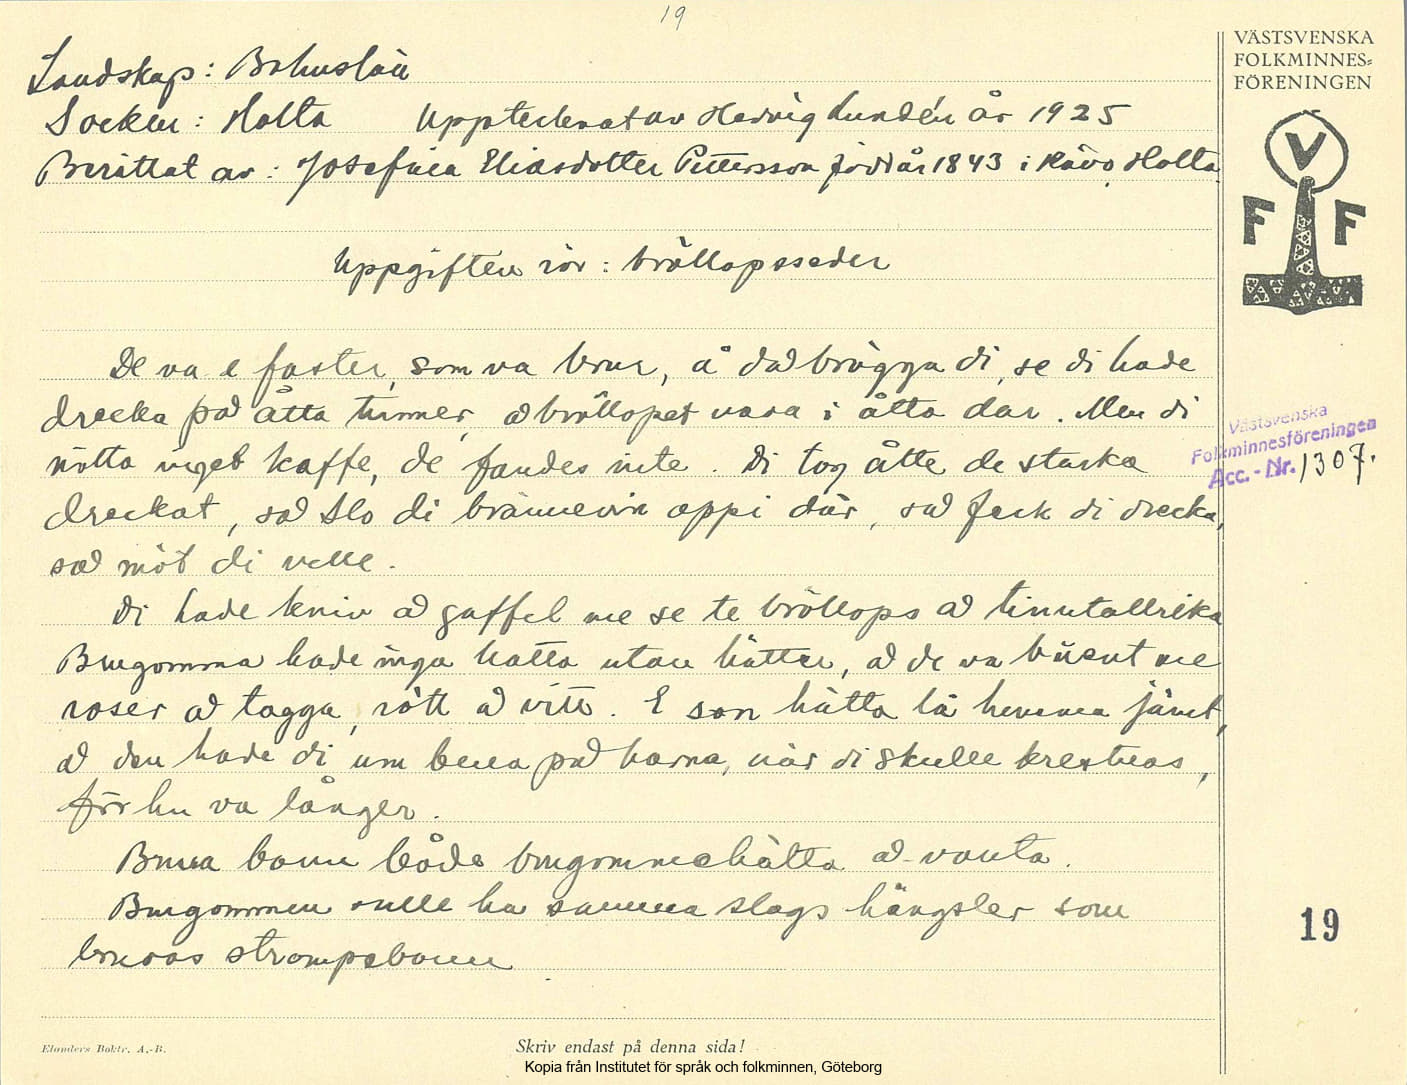 19
VÄSTSVENSKA
FOLKMINNES=
FÖRENINGEN
V
F F
Landskap: Bohuslän
Socken: Holta Upptecknat av Hedvig Lundén år 1925
Berättat av: Josefina Eliasdotter Pettersson född år 1843 i Kävo, Holta.
Uppgiften rör: bröllopsseder
De va e faster, som va brur, å då bröggа di, se di hade
drecka på åtta tunner, å bröllopet vara i åtta dar. Men di
nötta inget kaffe, de fandes inte. Di tog åtte de starka
dreckat, så slo di brännevin oppi där, så feck di drecka,
så möt di velle.
Di hade kniv å gaffel me se te bröllops å tinntallrika
Brugomma hade inga hatta utan hätter, å de va büent me
roser å tagga, rött å vitt. E son hätta lå hemma jämt,
å den hade di um bena på barna, när di skulle krestnas,
för hu va långer.
Brura bann både brugommehätta å vanta.
Brugommen sulle ha samma slags hängsler som
bruras strompebann.
Västsvenska
Folkminnesföreningen
Acc.-Nr. 1307.
19
Elanders Boktr. A.-B.
Skriv endast på denna sida!
Kopia från Institutet för språk och folkminnen, Göteborg